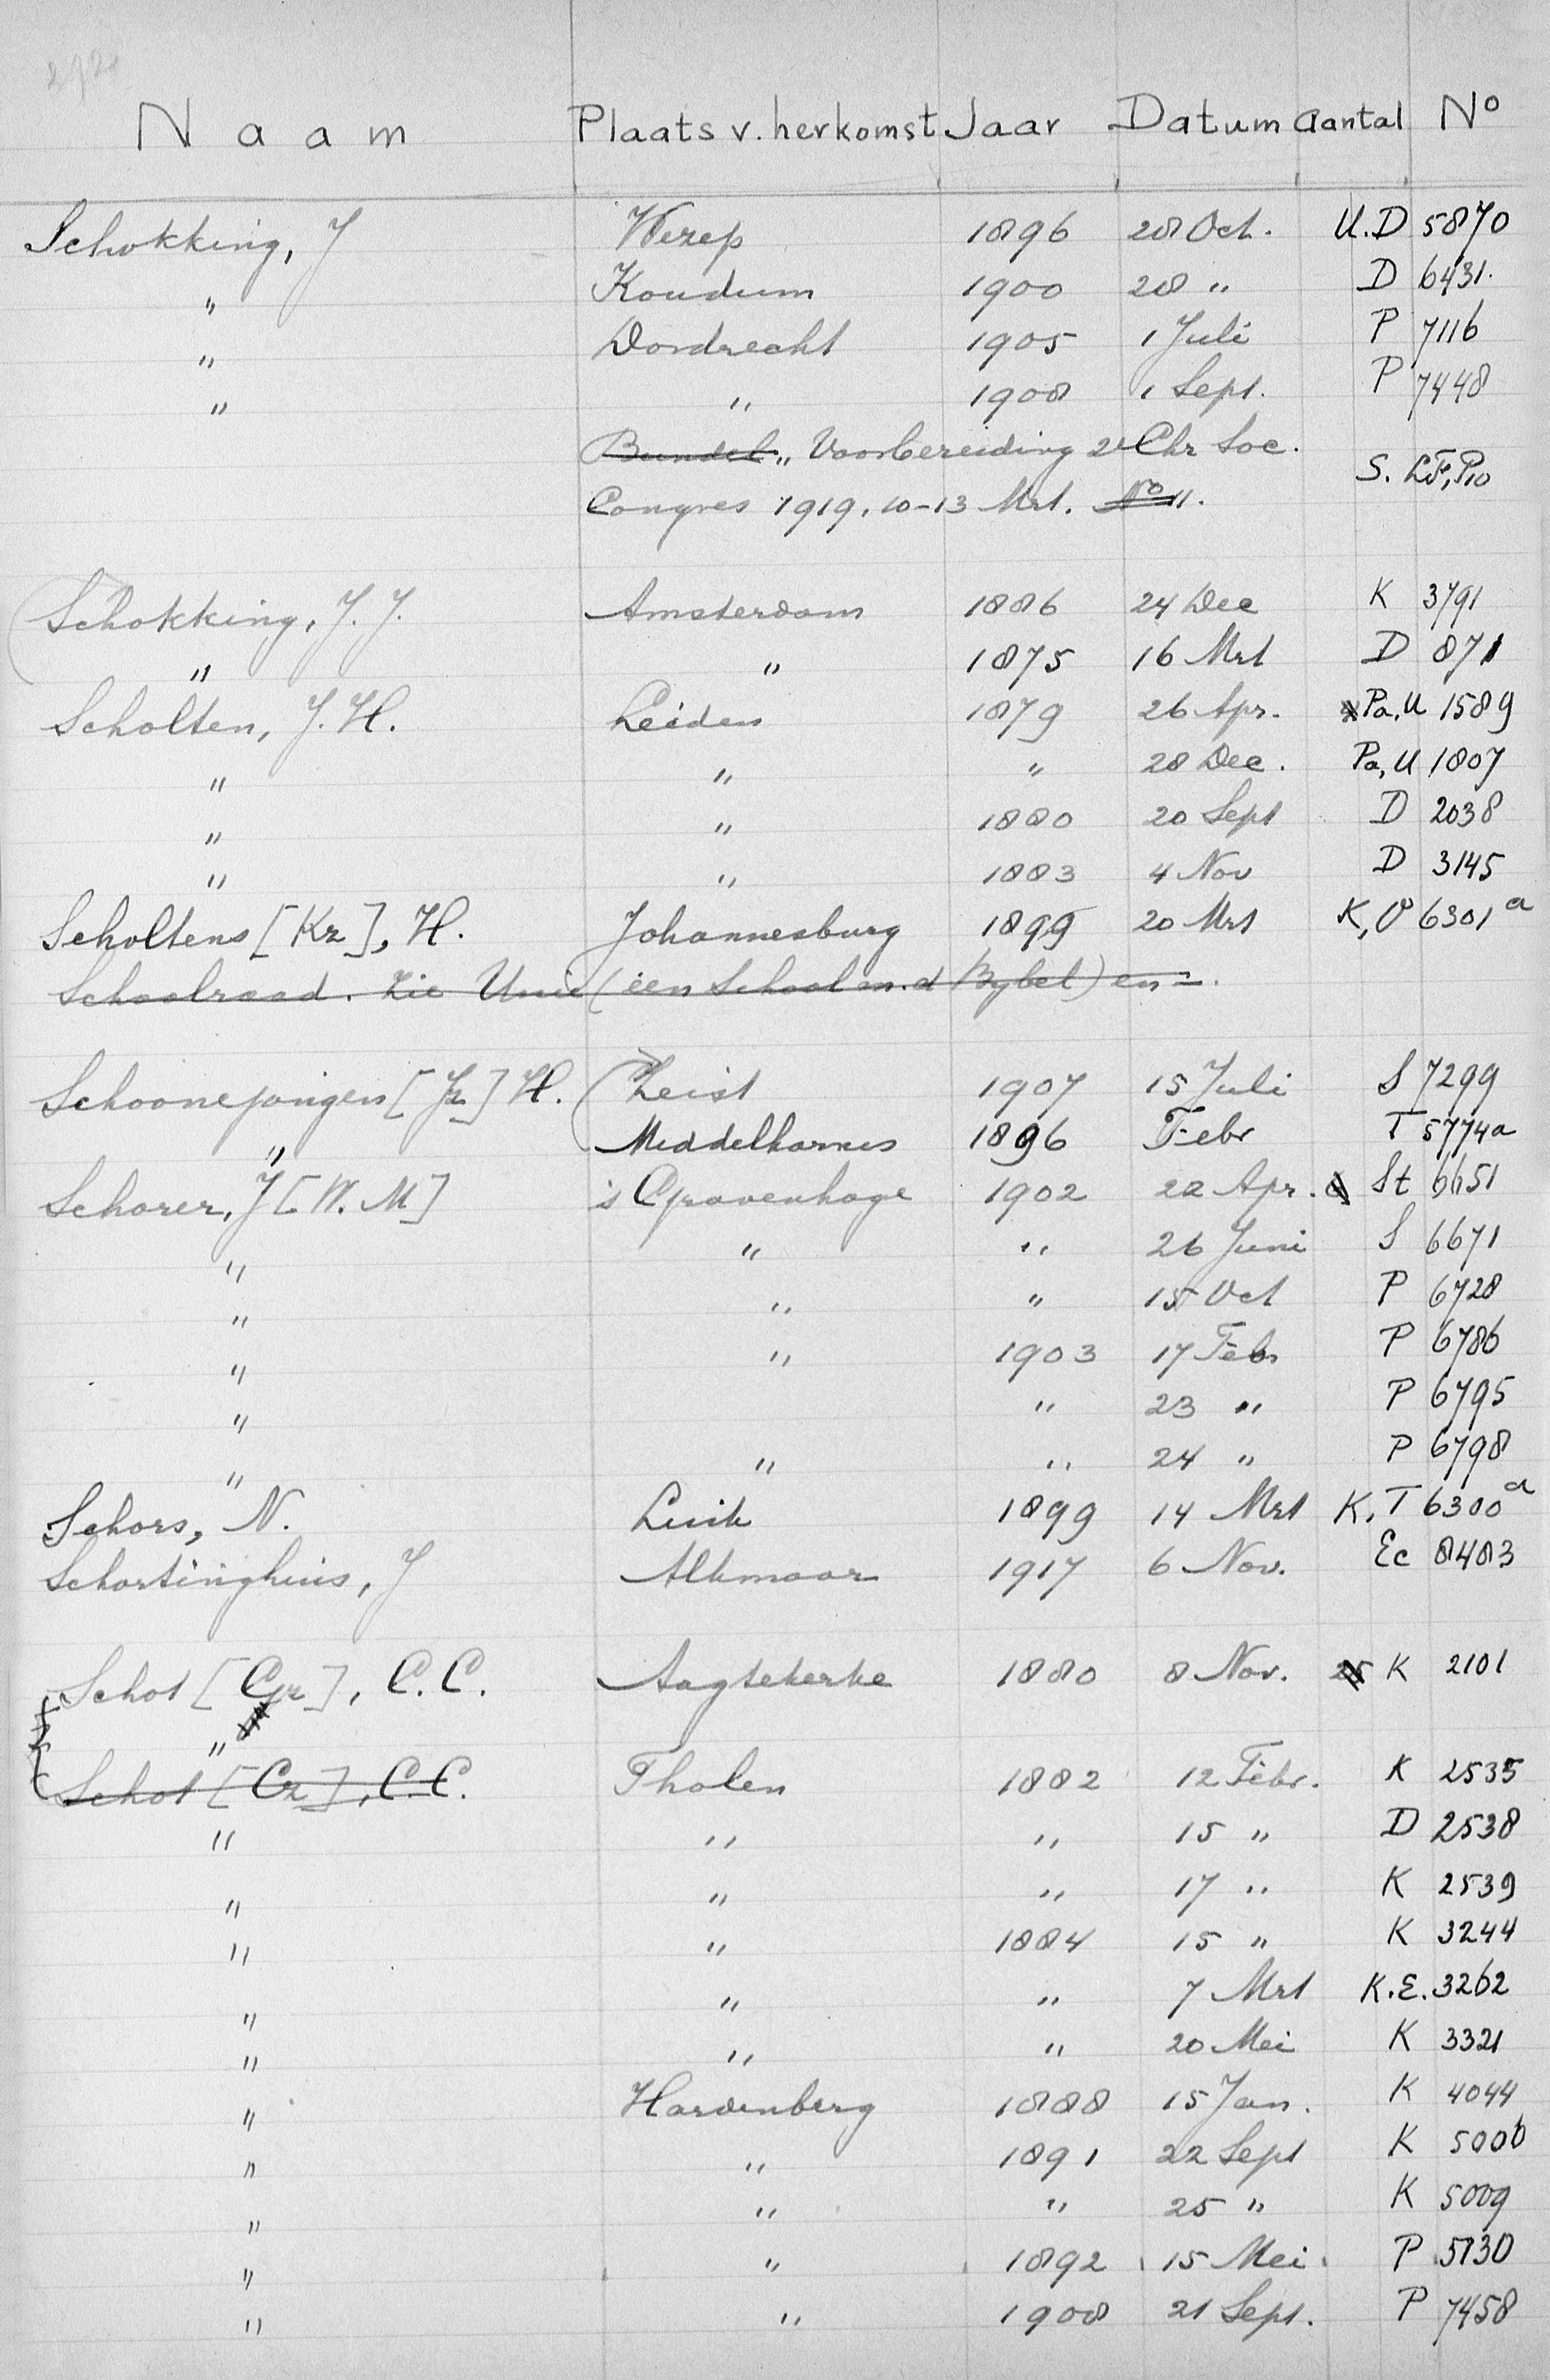 Naam Plaats v. herkomst Jaar Datum aantal No
Schokking, J Weesp 1896 28 Oct. U.D 5870
" Koudum 1900 28 " D 6431.
" Dordrecht 1905 1 Juli P 7116
" " 1908 1 Sept. P 7448
Bundel „ Voorbereiding 2e Chr Soc. S. LF, P10
Congres 1919, 10-13 Mrt. No 11.
Schokking, J. J. Amsterdam 1886 24 Dec K 3791
" " 1875 16 Mrt D 871
Scholten, J. H. Leiden 1879 26 Apr. Pa, U 1589
" " " 28 Dec. Pa, U 1807
" " 1880 20 Sept D 2038
" " 1883 4 Nov D 3145
Scholtens [Kz], H. Johannesburg 1899 20 Mrt K, O 6301a
Schoolraad. Zie Unie (een School m. d Bybel) en =.
Schoonejongen [Jz] H. Zeist 1907 15 Juli S 7299
" Middelharnis 1896 Febr T 5774a
Schorer, J [W. M] 's Gravenhage 1902 22 Apr. St 6651
" " " 26 Juni S 6671
" " " 15 Oct P 6728
" " 1903 17 Febr P 6786
" " 23 " P 6795
" " " 24 " P 6798
Schors, N. Luik 1899 14 Mrt K, T 6300a
Schortinghuis, J Alkmaar 1917 6 Nov. Ec 8483
Schot [Gz], C. C. Aagtekerke 1880 8 Nov. K 2101
"
Schot [Cz], C. C. Tholen 1882 12 Febr. K 2535
" " " 15 " D 2538
" " " 17 " K 2539
" " 1884 15 " K 3244
" " " 7 Mrt K. E. 3262
" " " 20 Mei K 3321
" Hardenberg 1888 15 Jan. K 4044
" " 1891 22 Sept K 5006
" " " 25 " K 5009
" " 1892 15 Mei P 5130
" " 1908 21 Sept. P 7458